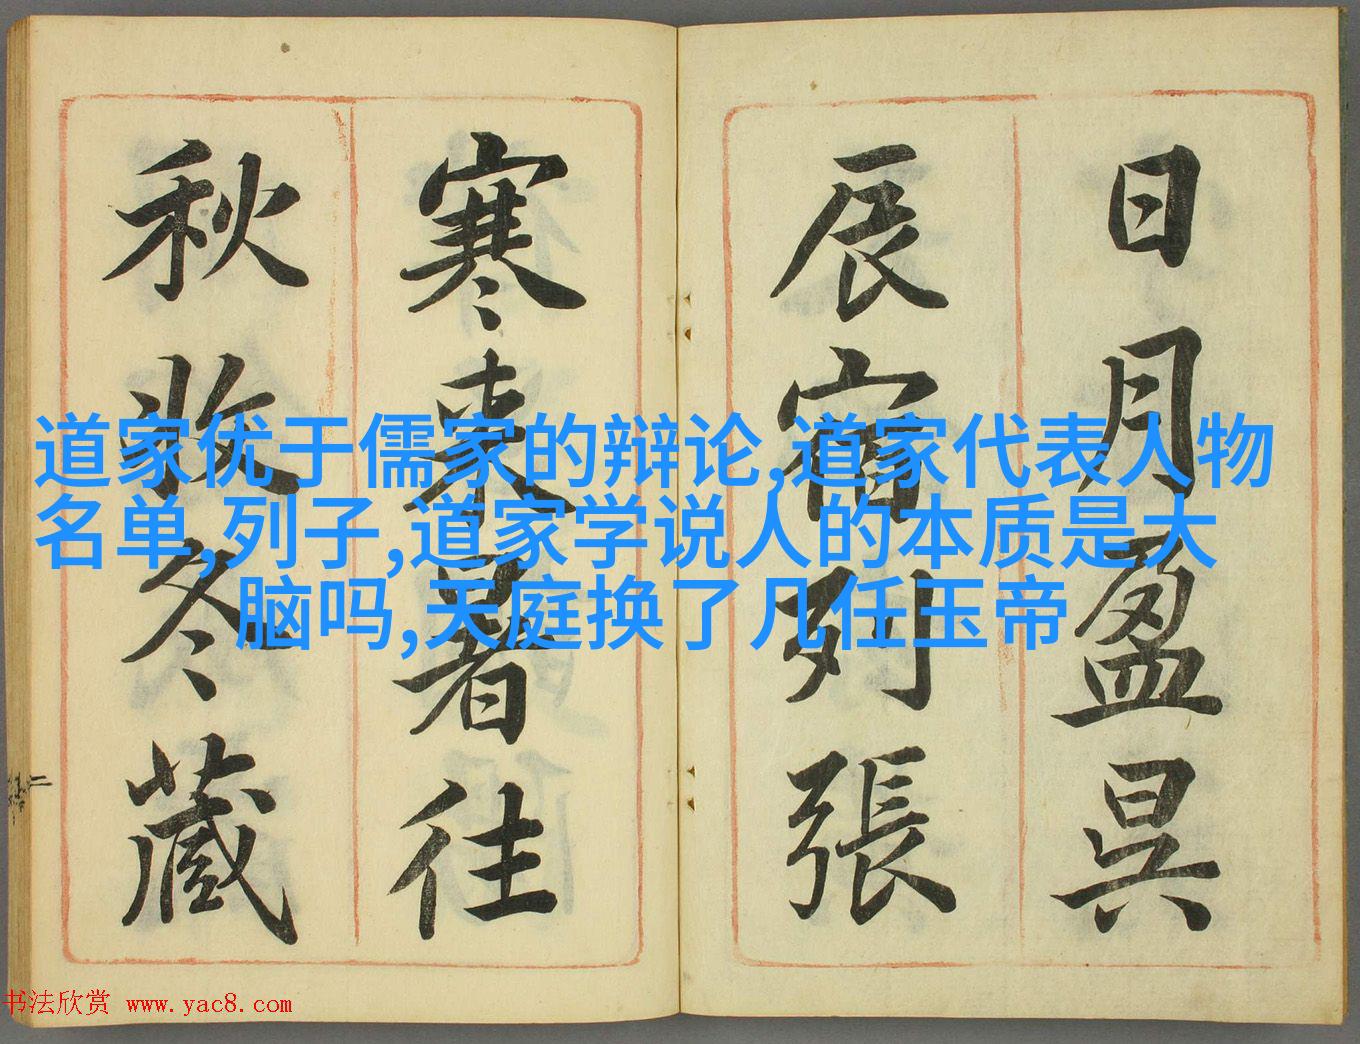 日月盈昃
辰宿列張
寒来暑往
秋收冬藏
道家优于儒家的辩论,道家代表人物
名单,列子,道家学说人的本质是大
脑吗,天庭换了几任玉帝
书法欣赏 www.yac8.com